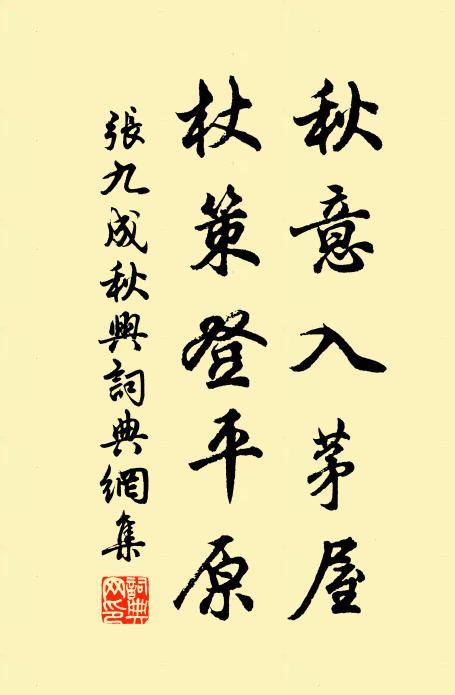 秋意入茅屋
杖策登平原
張九成秋興詞典網集
詞典網印